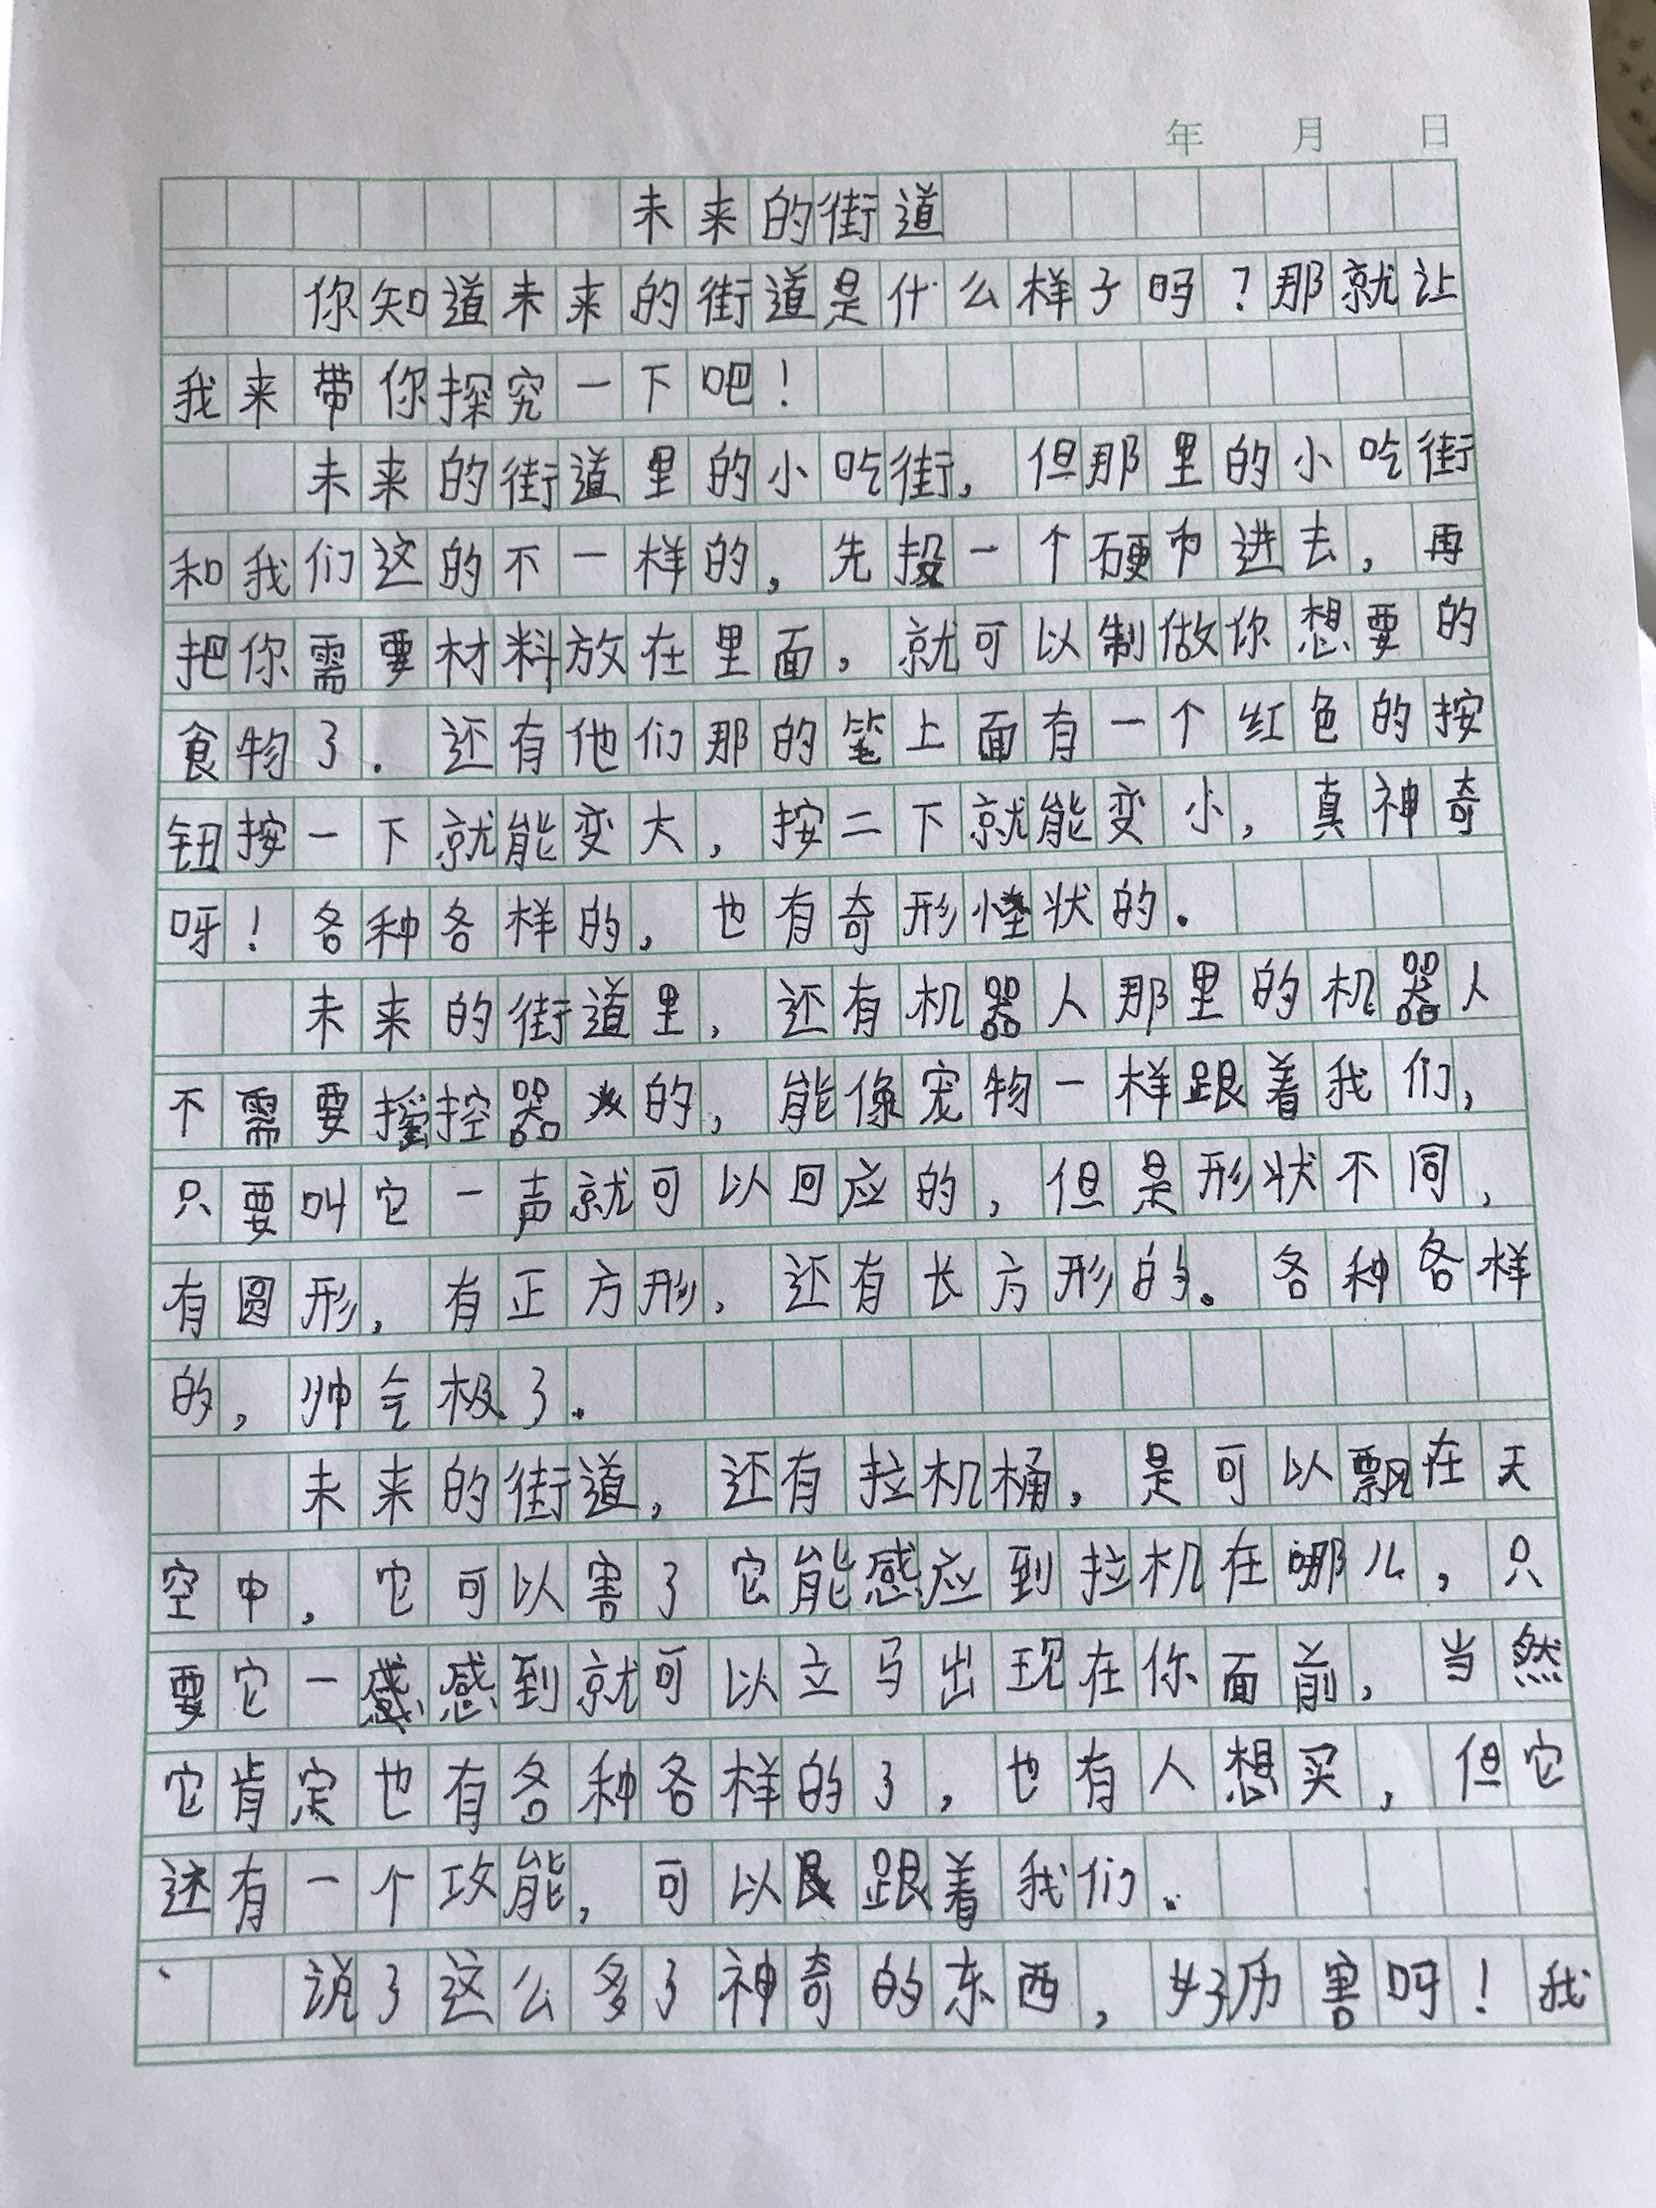 年 月 日
未来的街道
你知道未来的街道是什么样子吗?那就让
我来带你探究一下吧!
未来的街道里的小吃街,但那里的小吃街
和我们这的不一样的,先投一个硬币进去,再
把你需要材料放在里面,就可以制做你想要的
食物了.还有他们那的笔上面有一个红色的按
钮按一下就能变大,按二下就能变小,真神奇
呀!各种各样的,也有奇形怪状的.
未来的街道里,还有机器人那里的机器人
不需要摇控器的,能像宠物一样跟着我们,
只要叫它一声就可以回应的,但是形状不同,
有圆形,有正方形,还有长方形的。各种各样
的,帅气极了.
未来的街道,还有拉机桶,是可以飘在天
空中,它可以害了它能感应到拉机在哪儿,只
要它一感到就可以立马出现在你面前,当然
它肯定也有各种各样的了,也有人想买,但它
还有一个攻能,可以跟着我们.
说了这么多了神奇的东西,好历害呀!我